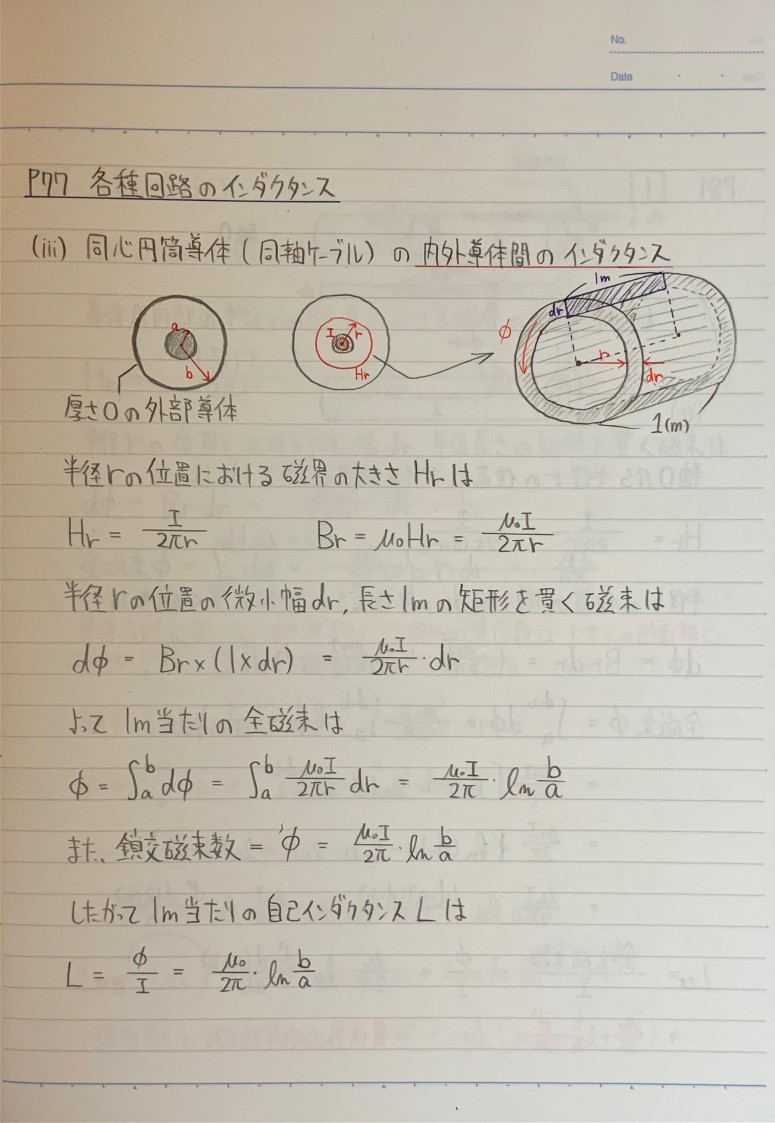 No.
Date
P77 各種回路のインダクタンス
(iii) 同心円筒導体(同軸ケーブル)の内外導体間のインダクタンス
a
b
I
r
Hr
1m
dr
φ
r
dr
1(m)
厚さ0の外部導体
半径rの位置における磁界の大きさHrは
Hr = I/2πr Br = μ₀Hr = μ₀I/2πr
半径rの位置の微小幅dr, 長さ1mの矩形を貫く磁束は
dφ = Br×(1×dr) = μ₀I/2πr・dr
よって1m当たりの全磁束は
φ = ∫ₐᵇ dφ = ∫ₐᵇ μ₀I/2πr dr = μ₀I/2π・ln b/a
また、鎖交磁束数 = φ = μ₀I/2π・ln b/a
したがって1m当たりの自己インダクタンスLは
L = φ/I = μ₀/2π・ln b/a